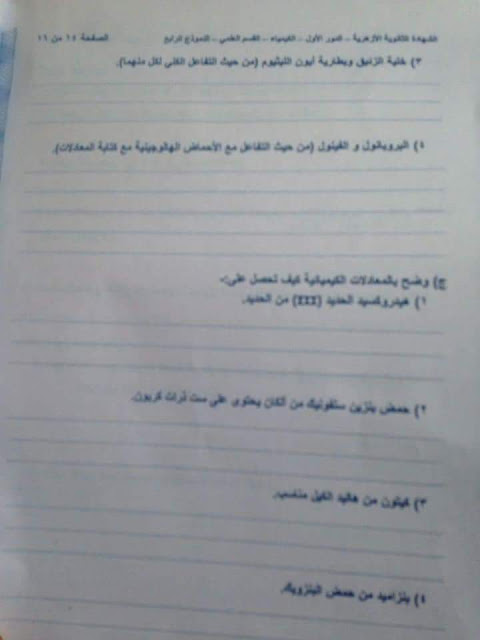 الشهادة الثانوية الأزهرية – الدور الأول – الكيمياء – القسم العلمي – النموذج الرابع الصفحة ١٤ من ١٦
٣) خلية الزئبق وبطارية أيون الليثيوم (من حيث التفاعل الكلي لكل منهما).
٤) البروبانول و الفينول (من حيث التفاعل مع الأحماض الهالوجينية مع كتابة المعادلات).
ج) وضح بالمعادلات الكيميائية كيف تحصل على:-
١) هيدروكسيد الحديد (III) من الحديد.
٢) حمض بنزين سلفونيك من ألكان يحتوى على ست ذرات كربون.
٣) كيتون من هاليد الكيل مناسب.
٤) بنزاميد من حمض البنزويك.